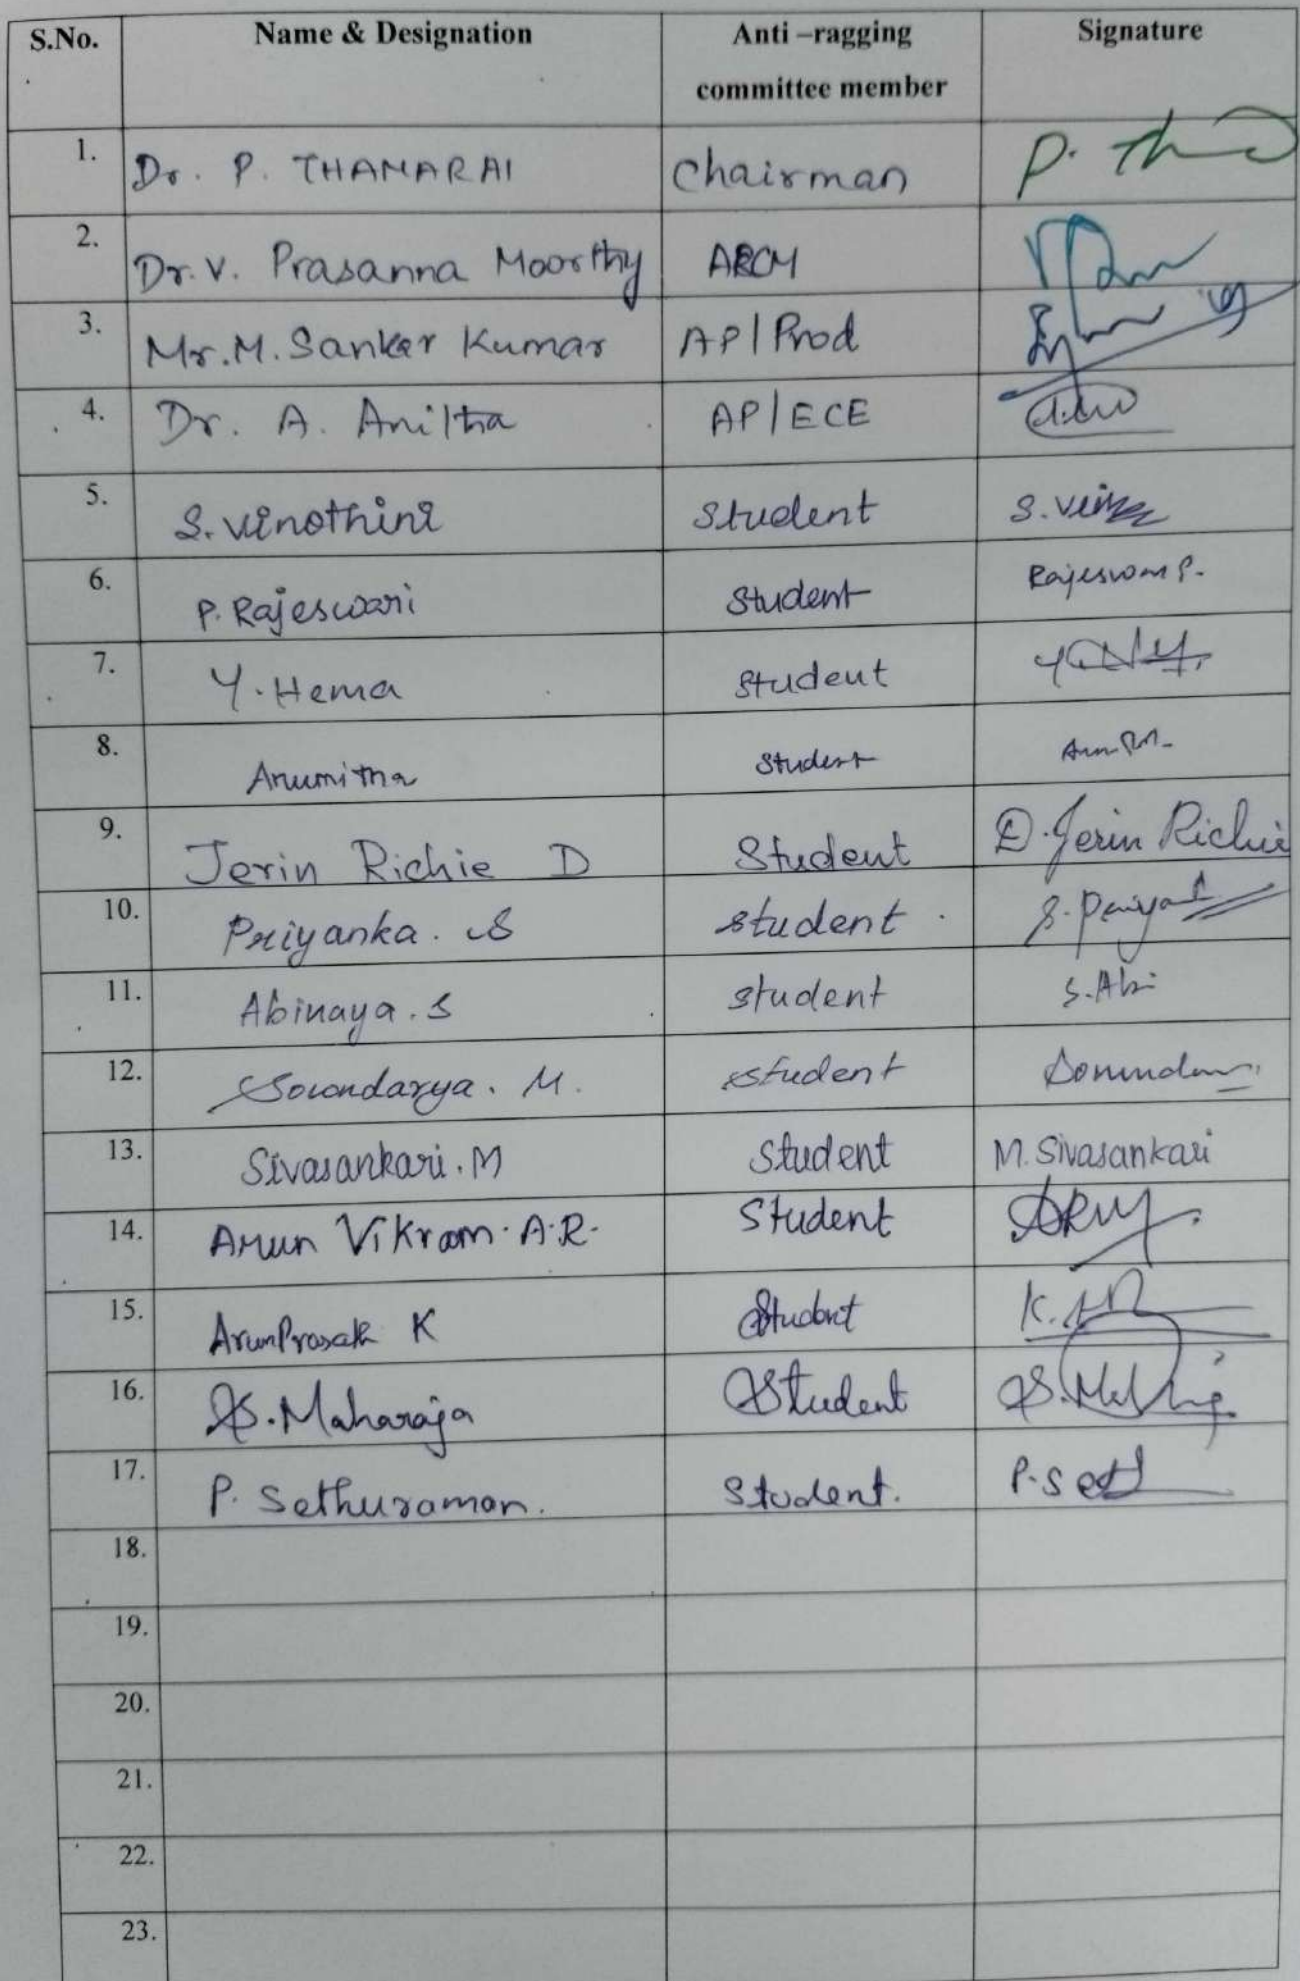 S.No. Name & Designation Anti –ragging committee member Signature
1. Dr. P. THAMARAI Chairman P. Th
2. Dr. V. Prasanna Moorthy ARCM
3. Mr. M. Sanker Kumar AP/Prod
4. Dr. A. Anitha AP/ECE
5. S. Vinothini Student
6. P. Rajeswari Student Rajeswari P.
7. Y. Hema Student
8. Arumitha Student
9. Jerin Richie D Student D. Jerin Richie
10. Priyanka. S student
11. Abinaya. S student S. Abi
12. Sowndarya. M. student
13. Sivasankari. M Student M. Sivasankari
14. Arun Vikram. A.R. Student
15. ArunPrasath K Student
16. S. Maharaja Student
17. P. Sethuraman. Student.
18.
19.
20.
21.
22.
23.